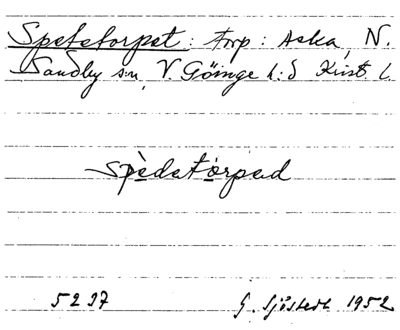 Spetetorpet: torp: Aska, N.
Sandby sn, V. Göinge h:d Krist. l.
spèdetårped
5237 G. Sjöstedt 1952